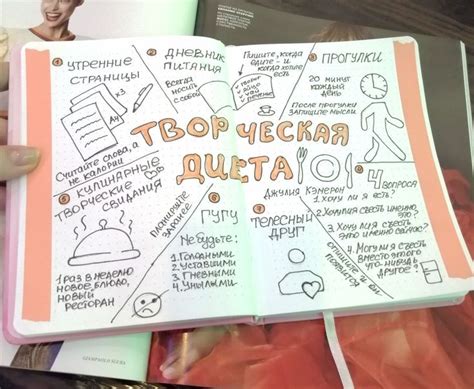 1
УТРЕННИЕ
СТРАНИЦЫ
x3
A4
Считайте слова, а
не калории
2
ДНЕВНИК
ПИТАНИЯ
Всегда
носить
с собой
Пишите, когда
едите - и
когда хотите
есть
3
ПРОГУЛКИ
20 минут
каждый
день
После прогулки
запишите мысли
ТВОРЧЕСКАЯ
ДИЕТА
Джулия Кэмерон
4
ВОПРОСА
1. Хочу ли я есть?
2. Хочу ли я съесть
именно это?
3. Хочу ли я съесть
это именно сейчас?
4. Могу ли я съесть
вместо этого
что-нибудь
другое?
КУЛИНАРНЫЕ
ТВОРЧЕСКИЕ
СВИДАНИЯ
Планируйте
заранее
1 раз в неделю
новое блюдо,
новый
ресторан
ГУГУ
Не будьте:
1. Голодными
2. Уставшими
3. Гневными
4. Унылыми
ТЕЛЕСНЫЙ
ДРУГ